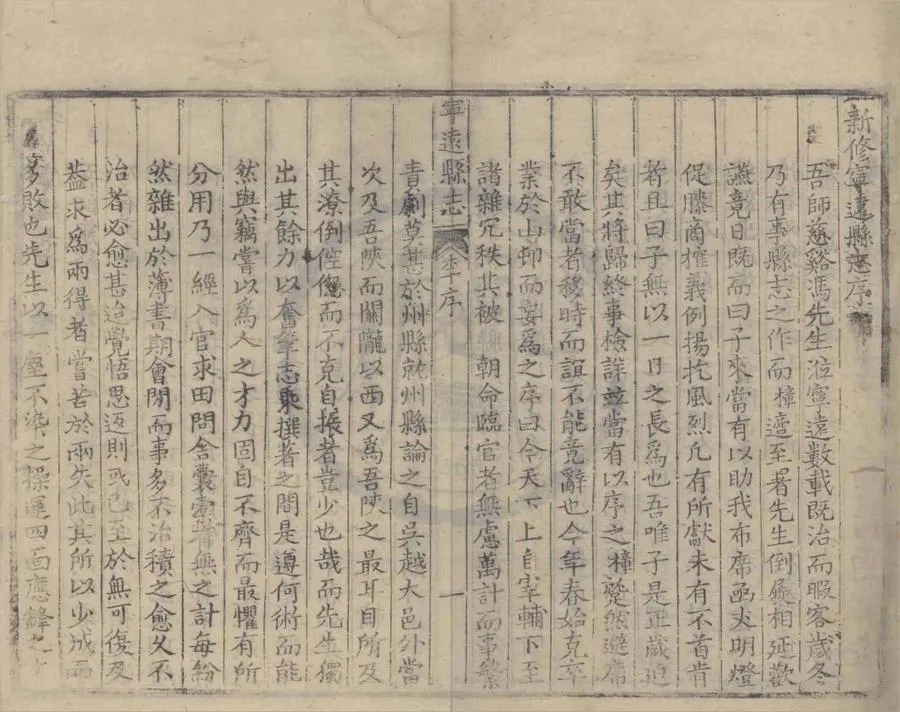 新修寧遠縣志序
吾師慈谿馮先生涖寧遠數載既治而暇客歲冬
乃有事縣志之作而樟適至署先生倒屣相延歡
讌竟日既而曰子來當有以助我布席函丈明燈
促膝商榷義例揚扢風烈凡有所獻未有不首肯
者且曰子無以一日之長爲也吾唯子是正歲迫
矣其將歸終事檢詳並當有以序之樟蹵然避席
不敢當者移時而誼不能竟辭也今年春始克卒
業於山邨而妄爲之序曰今天下上自宰輔下至
諸雜冗秩其被朝命臨官者無慮萬計而事繁
寧遠縣志 李序 一
責劇莫甚於州縣就州縣論之自吳越大邑外當
次及吾陜而關隴以西又爲吾陜之最耳目所及
其潦倒倥傯而不克自振者豈少也哉而先生獨
出其餘力以奮肇志乘撰著之間是遵何術而能
然與竊嘗以爲人之才力固自不齊而最懼有所
分用乃一經入官求田問舍囊橐著無之計每紛
然雜出於簿書期會閒而事多不治積之愈久不
治者必愈甚迨覺悟思返則或已至於無可復及
葢求爲兩得者嘗苦於兩失此其所以少成而
多敗也先生以一塵不染之操運四面應鋒之才